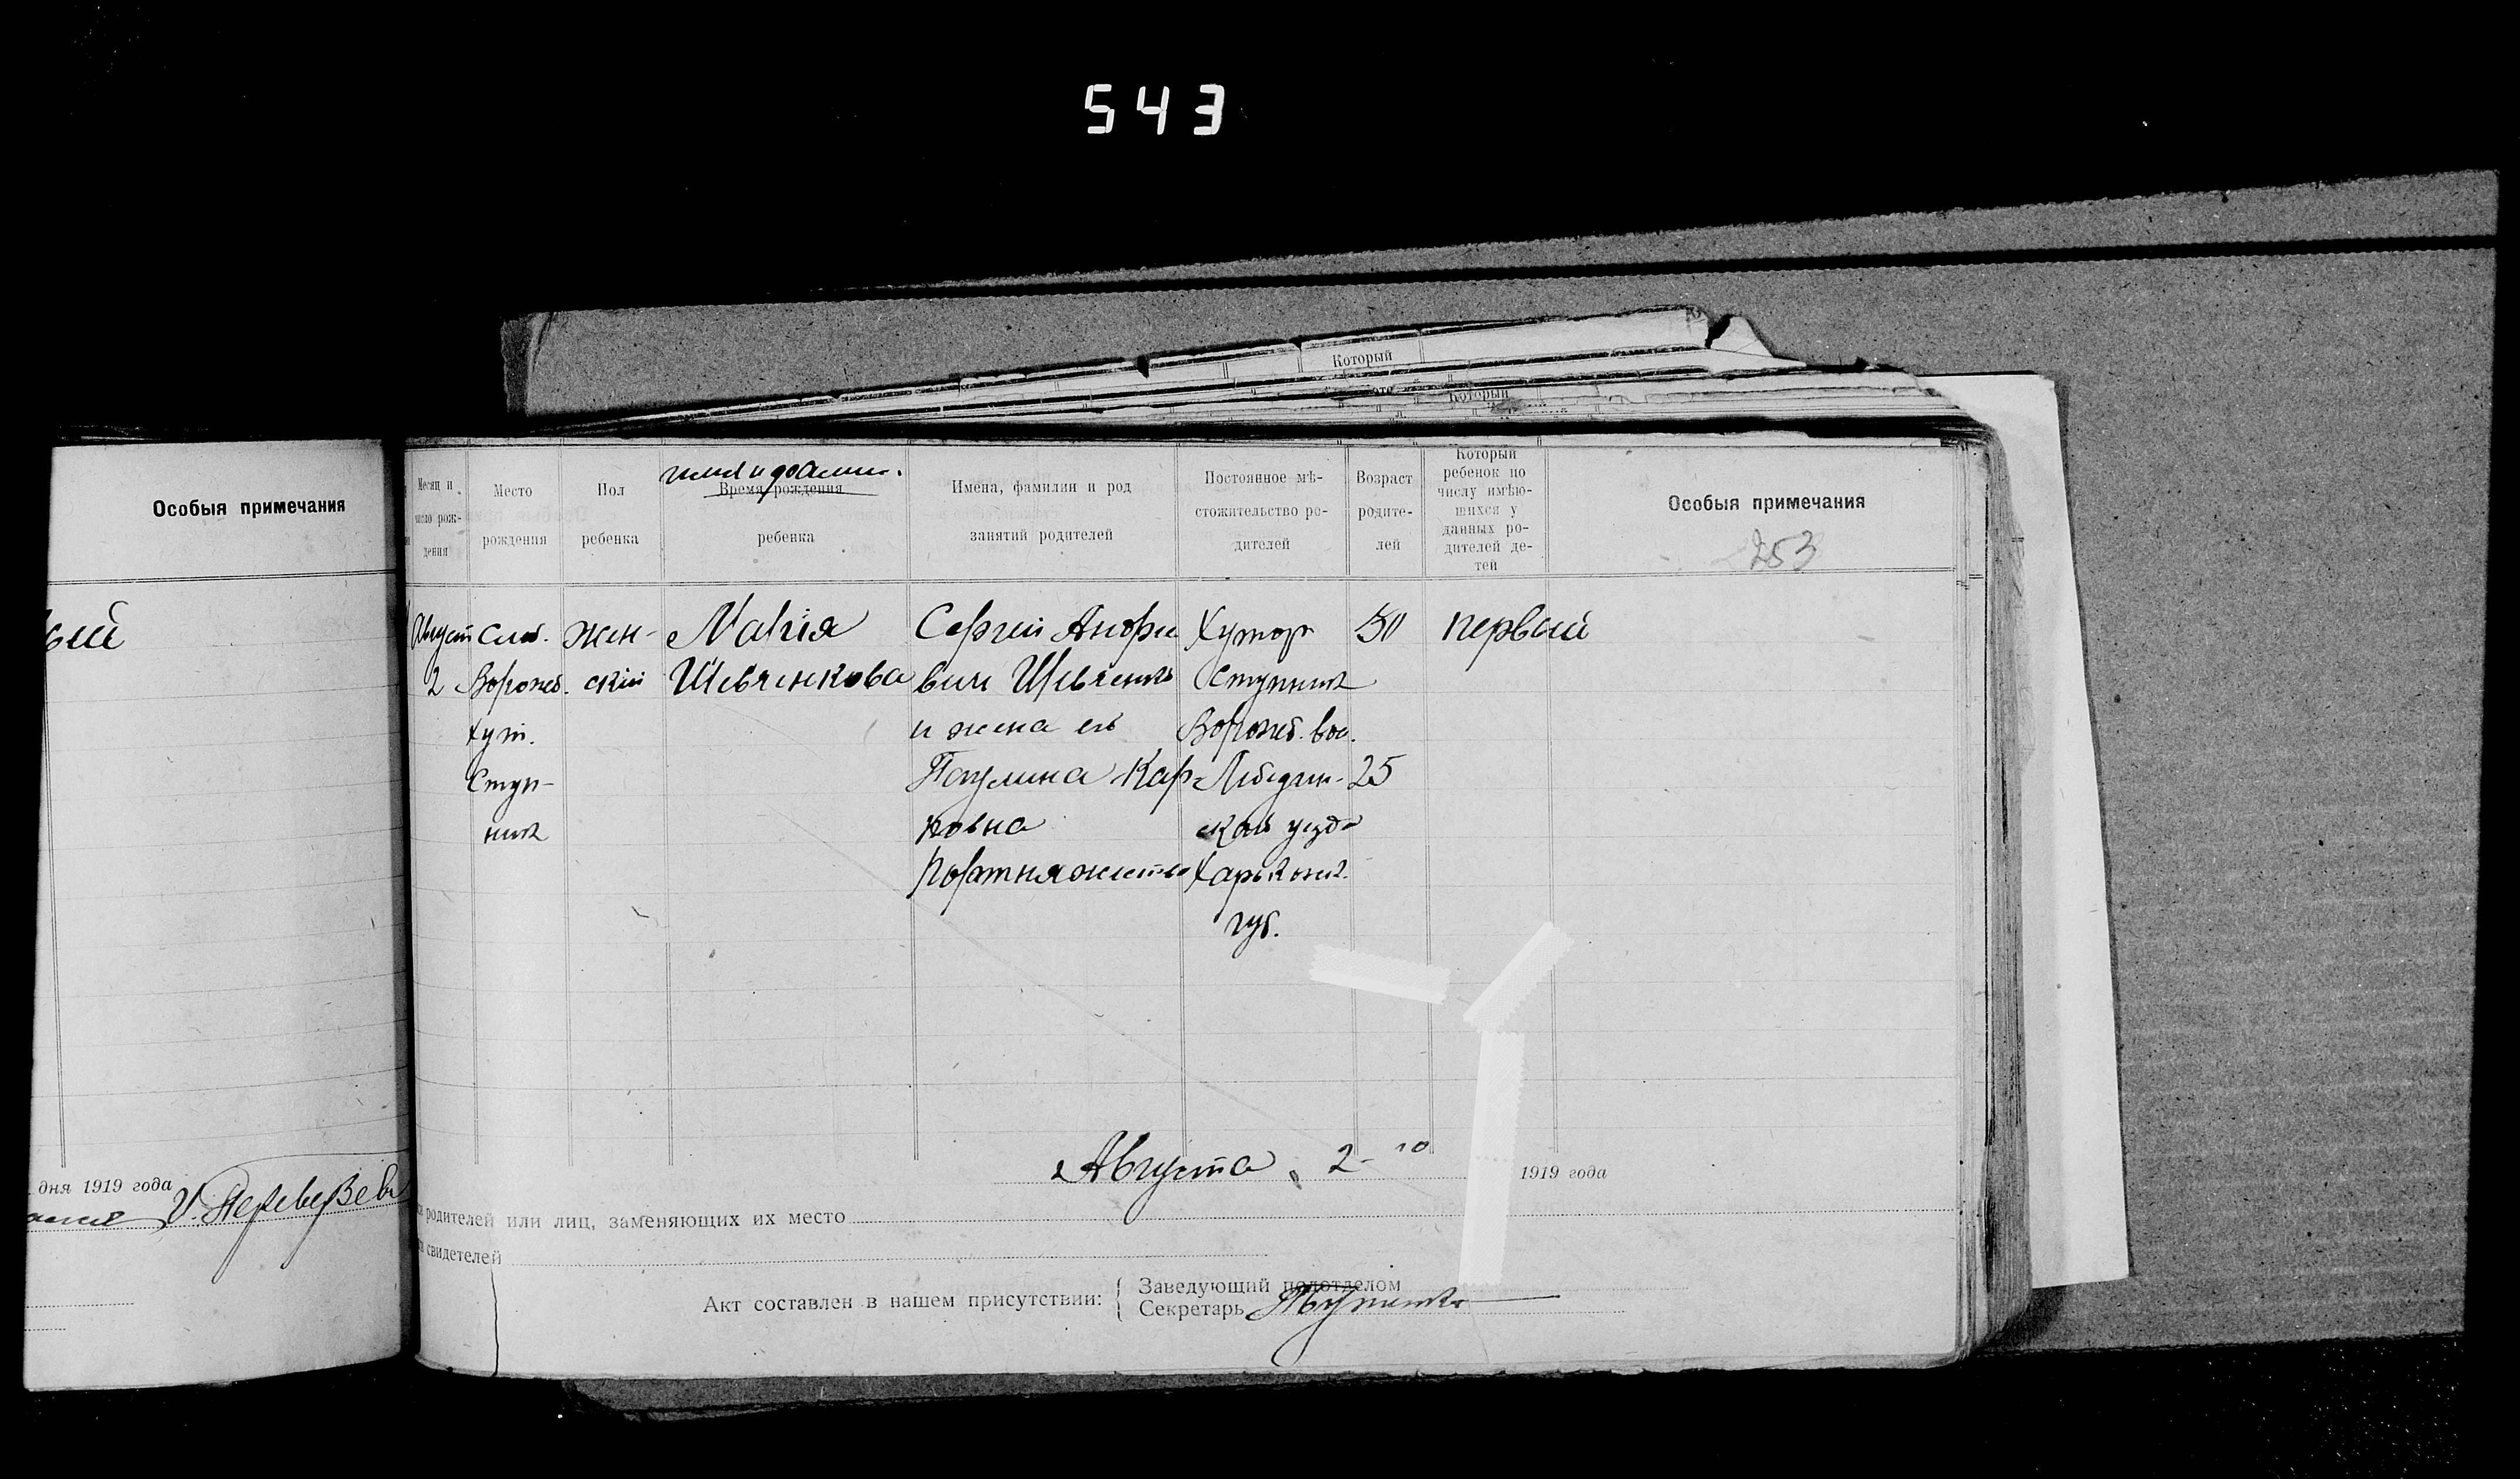 543
Который
Который
Особыя примечания
ый
дня 1919 года
Месяц и число рождения
Место рождения
Пол ребенка
имя и фамил.
Время рождения
ребенка
Имена, фамилии и род занятий родителей
Постоянное мѣстожительство родителей
Возраст родителей
Который ребенок по числу имѣющихся у данных родителей детей
Особыя примечания
253
Август
2
Слоб.
Ворожб.
хут.
Ступ-
жен-
ский
Марія
Шевченкова
Сергей
вич Шевченко
и жена его
Кар-
повна
Хутор
Ворожб. вол.
Лебедин-
уезда
губ.
25
первый
Августа 2-го 1919 года
родителей или лиц, заменяющих их место
свидетелей
Акт составлен в нашем присутствии:
Заведующий подотделом
Секретарь